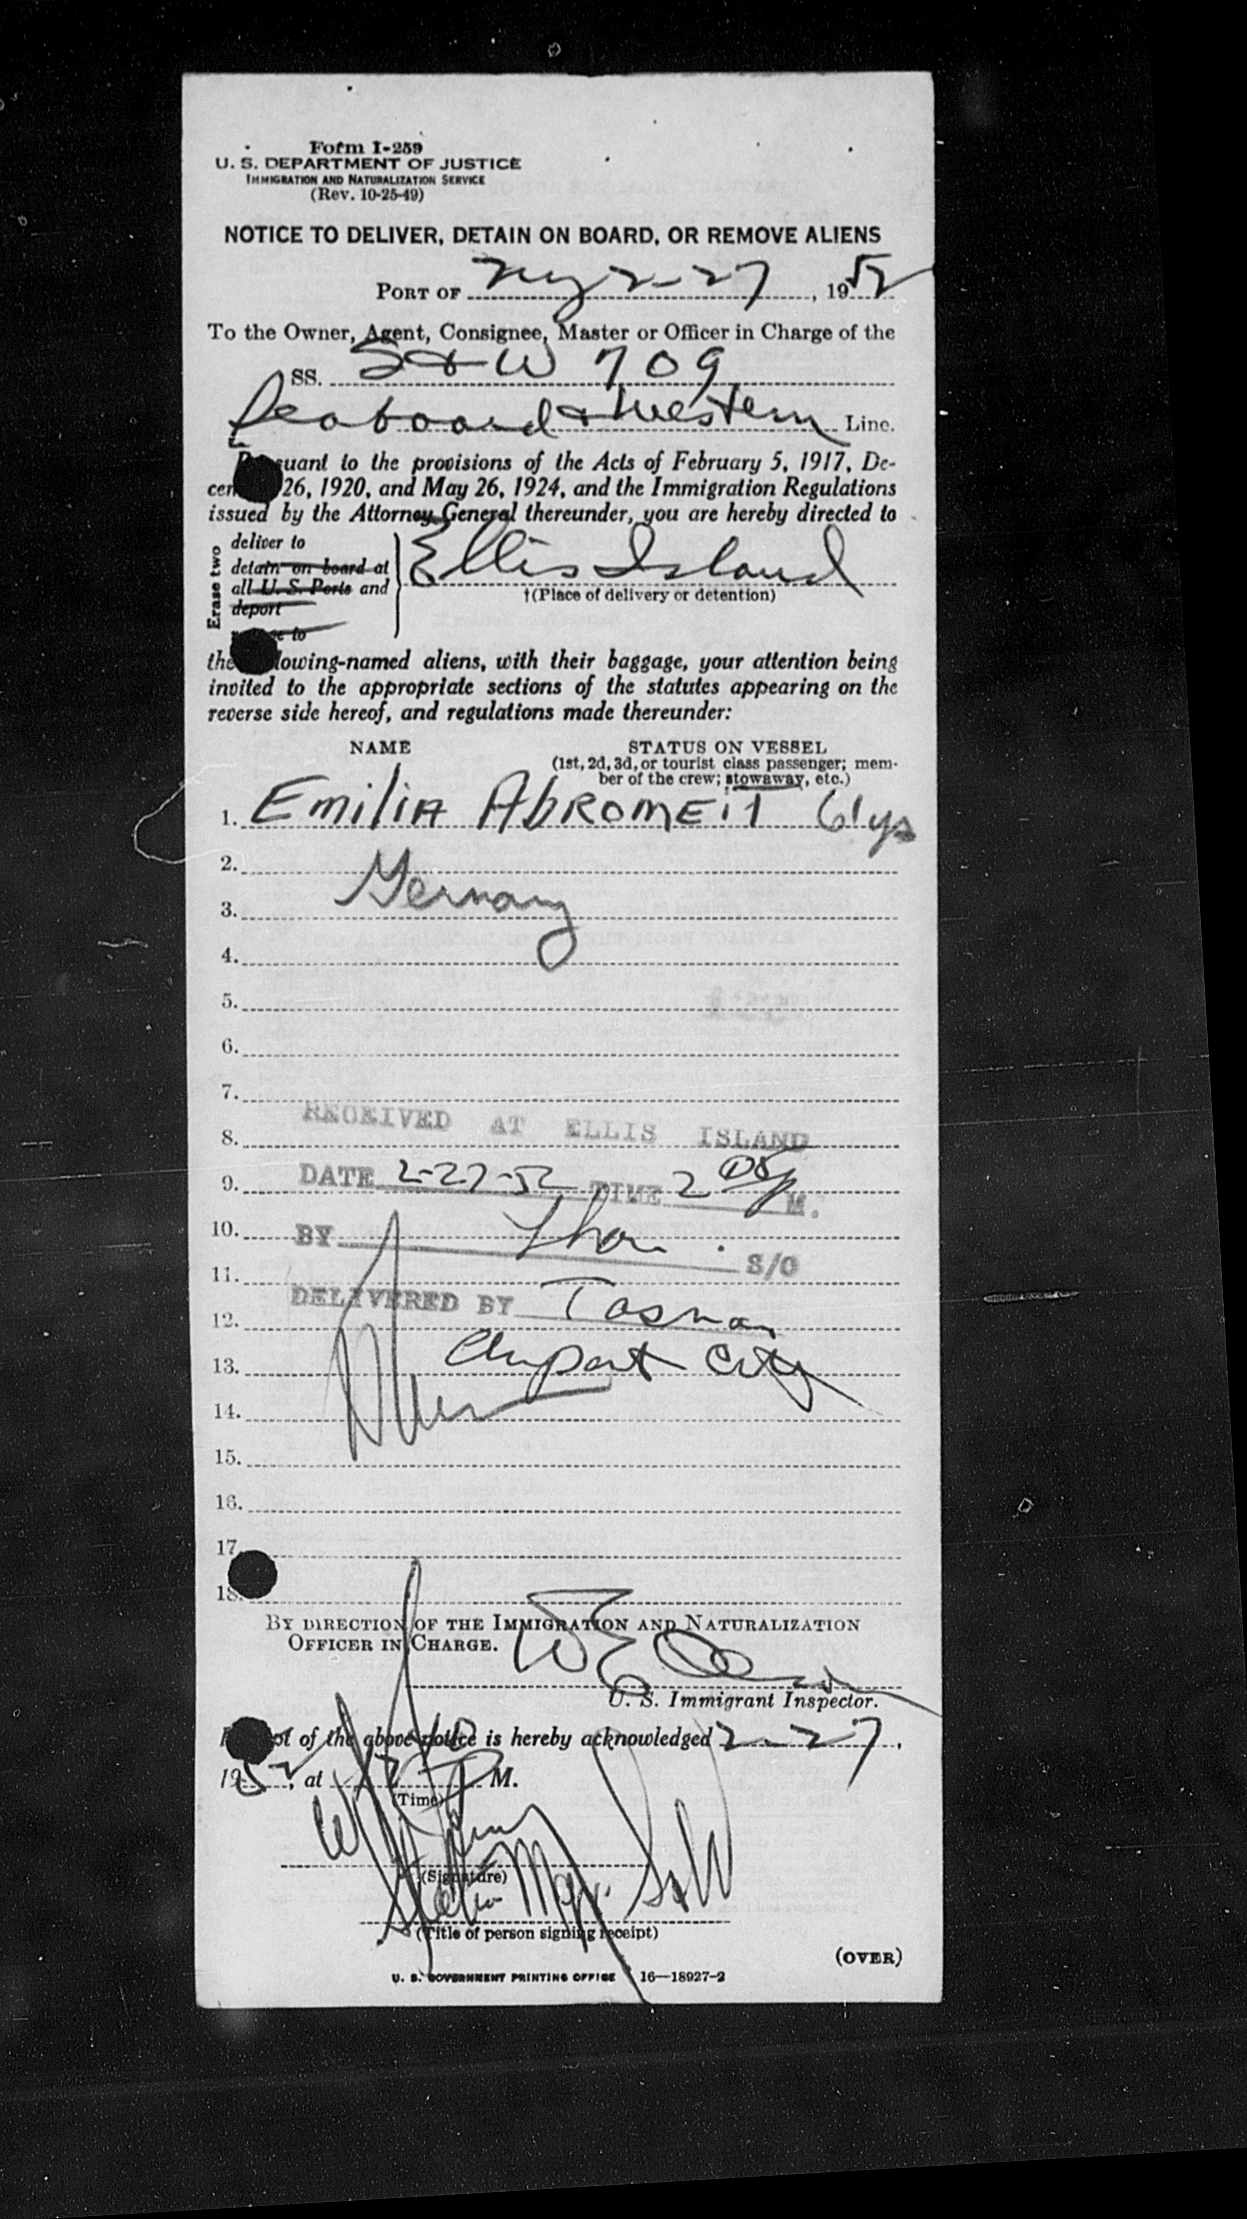 Form I-259
U. S. DEPARTMENT OF JUSTICE
IMMIGRATION AND NATURALIZATION SERVICE
(Rev. 10-25-49)
NOTICE TO DELIVER, DETAIN ON BOARD, OR REMOVE ALIENS
PORT OF NY 2-27, 1952
To the Owner, Agent, Consignee, Master or Officer in Charge of the
SS. S & W 709
Seaboard & Western Line.
Pursuant to the provisions of the Acts of February 5, 1917, De-
cem 26, 1920, and May 26, 1924, and the Immigration Regulations
issued by the Attorney General thereunder, you are hereby directed to
Erase two
deliver to
detain on board at
all U. S. Ports and
deport
to
Ellis Island
†(Place of delivery or detention)
the lowing-named aliens, with their baggage, your attention being
invited to the appropriate sections of the statutes appearing on the
reverse side hereof, and regulations made thereunder:
NAME STATUS ON VESSEL
(1st, 2d, 3d, or tourist class passenger; mem-
ber of the crew; stowaway, etc.)
1. Emilia Abromeit 61 ys
2.
Germany
3.
4.
5.
6.
7.
RECEIVED AT ELLIS ISLAND
8.
9. DATE 2-27-52 TIME 2 05 P M.
10. BY S/O
11.
DELIVERED BY
12.
13. Airport City
14.
15.
16.
17.
18.
BY DIRECTION OF THE IMMIGRATION AND NATURALIZATION
OFFICER IN CHARGE.
U. S. Immigrant Inspector.
of the above notice is hereby acknowledged 2-27,
1952, at M.
(Time)
(Signature)
Station Mgr. S&W
(Title of person signing receipt)
(OVER)
U. S. GOVERNMENT PRINTING OFFICE 16—18927-2